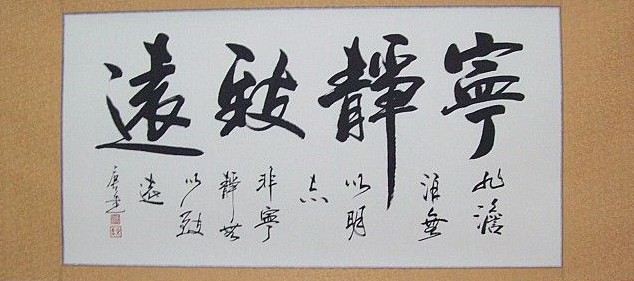 寧靜致遠
非澹
泊無
以明
志
非寧
靜無
以致
遠